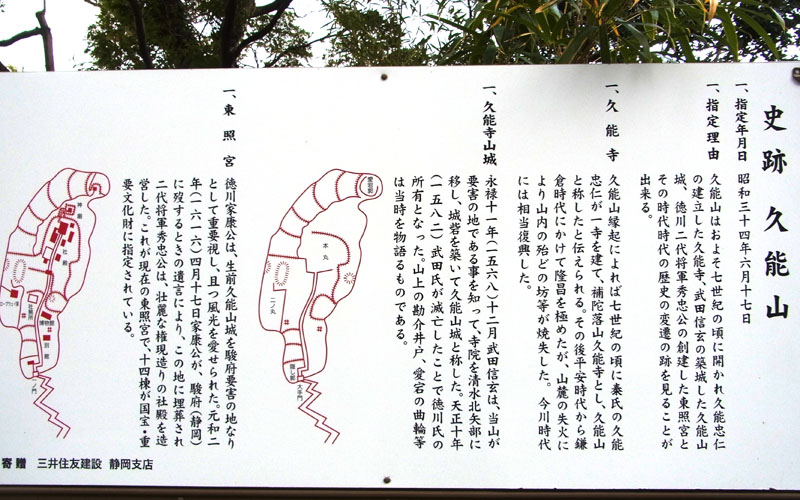 史跡 久能山
一、指定年月日 昭和三十四年六月十七日
一、指定理由 久能山はおよそ七世紀の頃に開かれ久能忠仁
の建立した久能寺、武田信玄の築城した久能山
城、徳川二代将軍秀忠公の創建した東照宮と
その時代時代の歴史の変遷の跡を見ることが
出来る。
一、久能寺 久能山縁起によれば七世紀の頃に秦氏の久能
忠仁が一寺を建て、補陀落山久能寺とし、久能山
と称したと伝えられる。その後平安時代から鎌
倉時代にかけて隆昌を極めたが、山麓の失火に
より山内の殆どの坊等が焼失した。今川時代
には相当復興した。
一、久能寺山城 永禄十一年(一五六八)十二月武田信玄は、当山が
要害の地である事を知って、寺院を清水北矢部に
移し、城砦を築いて久能山城と称した。天正十年
(一五八二)武田氏が滅亡したことで徳川氏の
所有となった。山上の勘介井戸、愛宕の曲輪等
は当時を物語るものである。
愛宕郭
本丸
二ノ丸
隠し郭
大手門
一、東照宮 徳川家康公は、生前久能山城を駿府要害の地なり
として重要視し、且つ風光を愛せられた。元和二
年(一六一六)四月十七日家康公が、駿府(静岡)
に歿するときの遺言により、この地に埋葬され
二代将軍秀忠公は、壮麗な権現造りの社殿を造
営した。これが現在の東照宮で、十四棟が国宝・重
要文化財に指定されている。
神廟
社殿
社務所
博物館
一ノ門
寄贈 三井住友建設 静岡支店